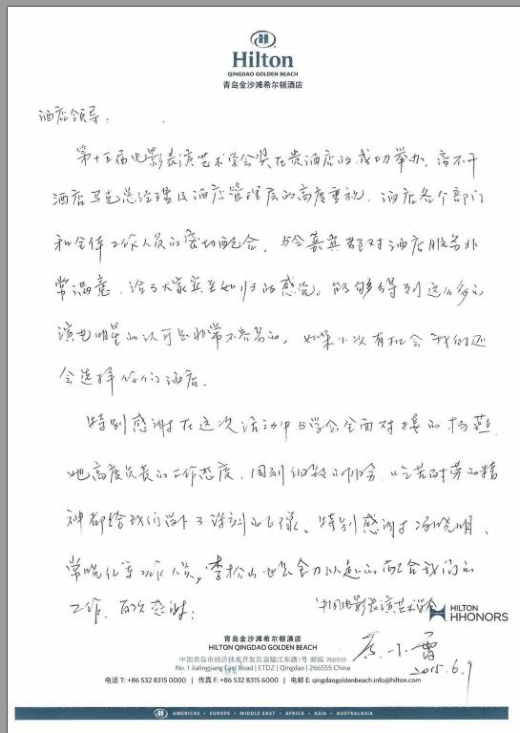 Hilton
QINGDAO GOLDEN BEACH
青岛金沙滩希尔顿酒店
酒店领导：
第十五届电影表演艺术学会奖在贵酒店的成功举办，离不开
酒店马克总经理及酒店管理层的高度重视，酒店各个部门
和全体工作人员的密切配合。与会嘉宾都对酒店服务非
常满意，给了大家宾至如归的感觉。能够得到这么多的
演艺明星的认可是非常不容易的。如果下次有机会我们还
会选择你们酒店。
特别感谢在这次活动中与学会全面对接的杨燕，
她高度负责的工作态度，周到细致的服务，吃苦耐劳的精
神都给我们留下了深刻的印象。特别感谢冯晓明、
常晓红等工作人员，李松山也尽全力以赴的配合我们的
工作，再次感谢！
中国电影表演艺术学会
2015.6.9
HILTON
HHONORS
青岛金沙滩希尔顿酒店
HILTON QINGDAO GOLDEN BEACH
中国青岛市经济技术开发区嘉陵江东路1号 邮编 266555
No. 1 Jialingjiang East Road | ETDZ | Qingdao | 266555 China
电话 T: +86 532 8315 0000 | 传真 F: +86 532 8315 6000 | 电邮 E: qingdaogoldenbeach.info@hilton.com
AMERICAS • EUROPE • MIDDLE EAST • AFRICA • ASIA • AUSTRALASIA